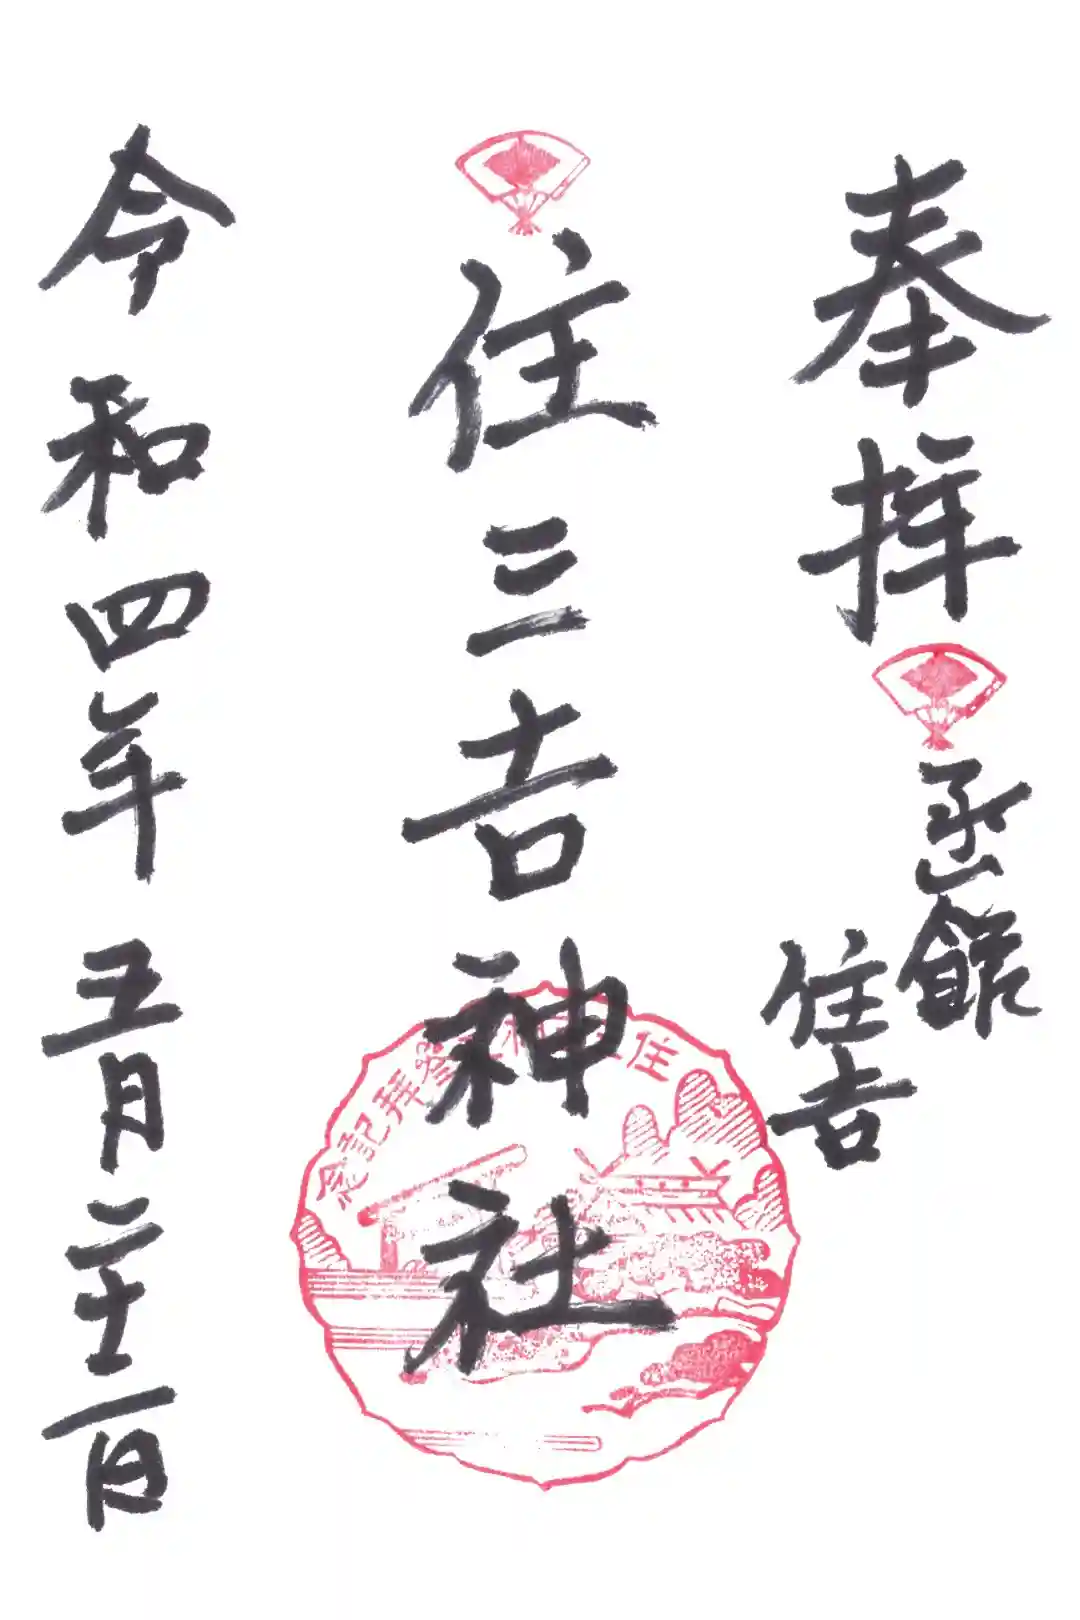 奉拝
函館
住吉
住三吉神社
令和四年五月二十一日
住三吉神社參拜記念